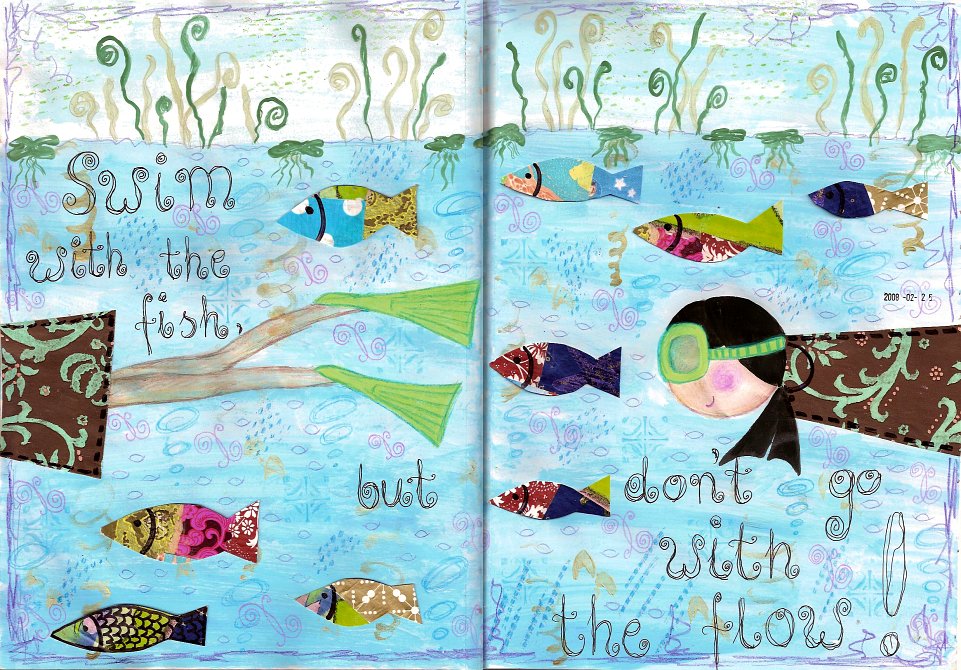 Swim
with the
fish,
but
don't go
with
the flow!
2008-02-25